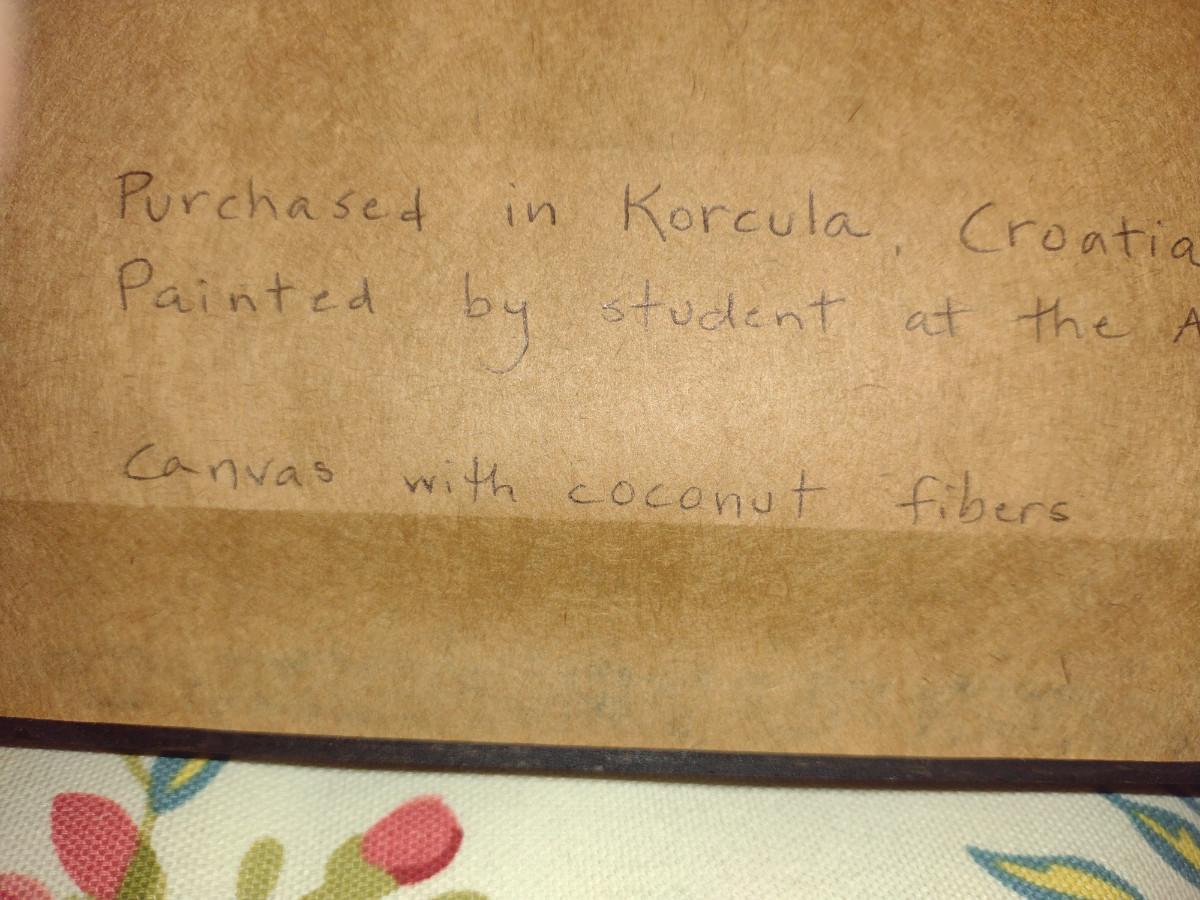 Purchased in Korcula, Croatia
Painted by student at the A
Canvas with coconut fibers